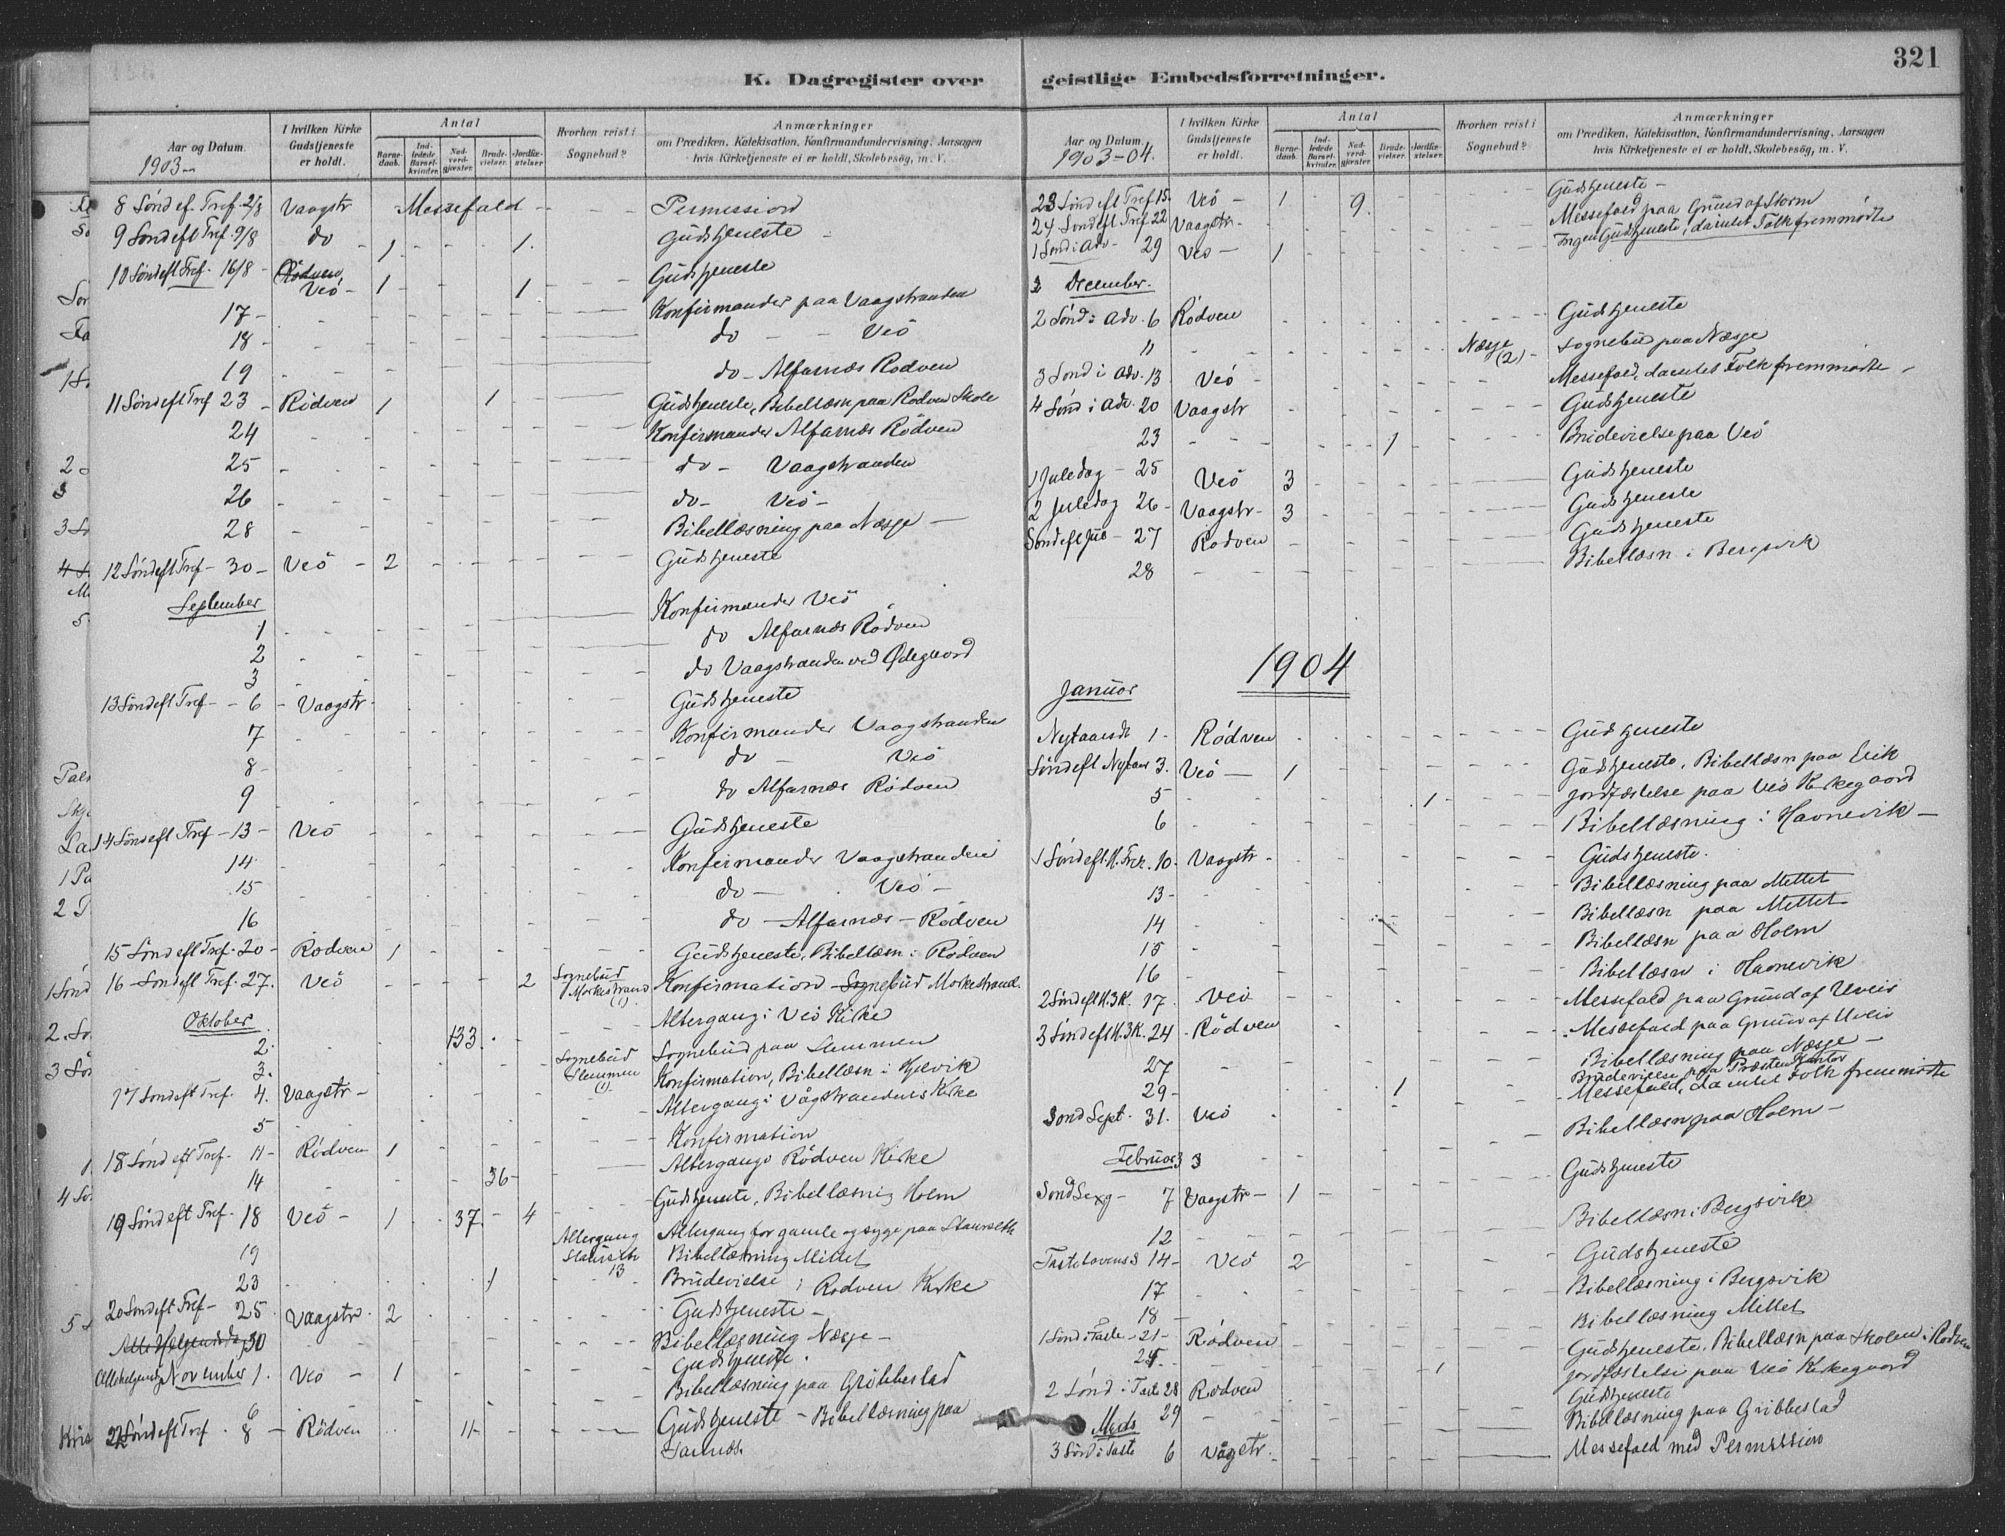 321
K. Dagregister over geistlige Embedsforretninger.
Aar og Datum. 1903
I hvilken Kirke Gudstjeneste er holdt.
Antal
Barnedaab.
Indledede Barselkvinder.
Nadverdgjæster.
Brudevielser.
Jordfæstelser.
Hvorhen reist i Sognebud?
Anmærkninger
om Prædiken, Katekisation, Konfirmandundervisning, Aarsagen
hvis Kirketjeneste ei er holdt, Skolebesøg, m. V.
8 Sønd ef. Tref. 2/8 Vaagstr Messefald Permission
9 Sønd eft Tref. 9/8 do 1 1 Gudstjeneste
10 Sønd eft Tref. 16/8 Rødven Veö 1 1 Gudstjeneste
17 Konfirmander paa Vaagstranden
18 do Veö
19 do Alfarnæs Rødven
11 Sønd eft Tref 23 Rödven 1 1 Gudstjeneste, Bibellæsn paa Rødven Skole
24 Konfirmander Alfarnæs Rødven
25 do Vaagstranden
26 do Veö
28 Bibellæsning paa Næsje
12 Sønd eft Tref 30 Veö 2 Gudstjeneste
September
1 Konfirmander Veö
2 do Alfarnæs Rødven
3 do Vaagstranden ved Ødegaard
13 Sønd eft Tref 6 Vaagstr Gudstjeneste
7 Konfirmander Vaagstranden
8 do Veö
9 do Alfarnæs Rødven
14 Sønd eft Tref 13 Veö Gudstjeneste
14 Konfirmander Vaagstranden
15 do Veö
16 do Alfarnæs Rødven
15 Sønd eft Tref. 20 Rødven 1 Gudstjeneste, Bibellæsn i Rødven
16 Sønd eft Tref. 27. Veö 2 Sognebud Morkestrand (1) Konfirmation Sognebud Morkestrand.
Oktober Altergang i Veö Kirke
2. 133. Sognebud paa Slemmen
3. Sognebud Slemmen (1) Konfirmation, Bibellæsn i Hjelvik
17 Sønd eft Tref. 4. Vaagstr Altergang i Vågstrandens Kirke
5 Konfirmation
18 Sønd eft Tref. 11 Rødven 1 Altergang Rødven Kirke
14 36 Gudstjeneste, Bibellæsnig Holm
19 Sønd eft Tref. 18 Veö 1 37. 4 Altergang for gamle og syge paa Staurseth
19 Altergang Staurseth 13 Bibellæsning Mittet
23 1 Brudevielse i Rødven Kirke
20 Sønd eft Tref 25 Vaagstr 2 Gudstjeneste
Alle Helgensdag 30 Bibellæsning Næsje
Allehelgensd November 1. Veö 1 Gudstjeneste.
6 Bibellæsning paa Gribbestad
22 Sønd eft Tref 8 Rödven 11 Gudstjeneste Bibellæsning paa
Aar og Datum. 1903-04.
I hvilken Kirke Gudstjeneste er holdt.
Antal
Barnedaab.
Indledede Barselkvinder.
Nadverdgjæster.
Brudevielser.
Jordfæstelser.
Hvorhen reist i Sognebud?
Anmærkninger
om Prædiken, Katekisation, Konfirmandundervisning, Aarsagen
hvis Kirketjeneste ei er holdt, Skolebesøg, m. V.
23 Sønd eft Tref 15. Veö 1 9. Gudstjeneste
24 Sønd eft Tref 22 Vaagstr. Messefald paa Grund af Storm
1 Sønd i Adv 29 Veö 1 Ingen Gudstjeneste, da intet Folk fremmødte
December.
2 Sønd i Adv. 6 Rødven Gudstjeneste
11 Næsje (2) Sognebud paa Næsje
3 Sønd i Adv. 13 Veö Messefald, da intet Folk fremmødte
4 Sønd i Adv. 20 Vaagstr Gudstjeneste
23 1 Brudevielse paa Veö
1 Juledag 25 Veö 3 Gudstjeneste
2 Juledag 26 Vaagstr 3 Gudstjeneste
Sønd eft Jul 27 Rødven Gudstjeneste
28 Bibellæsn i Bergsvik
1904
Januar
Nytaarsd. 1 Rödven Gudstjeneste
Sønd eft Nytaar 3. Veö 1 Gudstjeneste. Bibellæsn paa Erik
5 1 Jordfæstelse paa Veö Kirkegaard
6 Bibellæsning i Havnevik
1 Sønd eft. H. Tr.K. 10 Vaagstr Gudstjeneste.
13 Bibellæsning paa Mittet
14 Bibellæsn paa Mittet
15 Bibellæsn paa Holm
16 Bibellæsn i Havnevik
2 Sønd eft H.3K. 17. Veö Messefald paa Grund af Uveir
3 Sønd eft H.3K. 24 Rödven Messefald paa Grund af Uveir
27 Bibellæsning paa Næsje
29 1 Brudevielse paa Præstens Kontor
Sønd Sept. 31. Veö Messefald, da intet Folk fremmødte
Februar 3 Bibellæsn paa Holm
Sønd Sexg 7 Vaagstr 1 Gudstjeneste
12 Bibellæsn i Bergsvik
Fastelavensd 14 Veö 2 Gudstjeneste
17 Bibellæsning i Bergsvik
18 Bibellæsning Mittet
1 Sønd i Faste 21 Rødven Gudstjeneste. Bibellæsn paa Skolen i Rødven
25. 1 Jordfæstelse paa Veö Kirkegaard
2 Sønd i Faste 28 Rødven Gudstjeneste
29 Bibellæsning paa Gribbestad
Marts
3 Sønd i Faste 6 Vågstr. Messefald med Permission